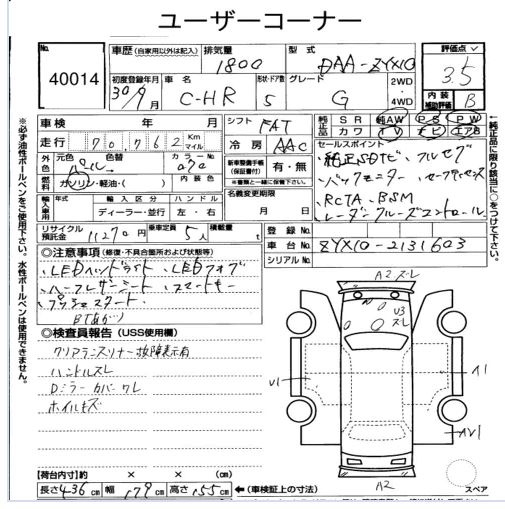 ユーザーコーナー
No. 40014
車歴 (自家用以外は記入) 排気量 1800 型式 DAA-ZYX10 評価点 3.5
初度登録年月 30年9月 車名 C-HR 形状・ドア数 5 グレード G 2WD・4WD 内装補助評価 B
車検 年 月 シフト FAT 純正品 SR 純AW PS PW
走行 70,762 Km マイル 冷房 AAC カワ TV ナビ エアB
外色 元色 パール 色替 カラーNo. 070 新車整備手帳(保証書付) 有・無 セールスポイント
燃料 ガソリン・軽油・( ) 内装色 ※書類と一緒に保管下さい。 、純正SDナビ・フルセグ
輸入車用 輸入区分 ハンドル 名義変更期限 、バックモニター・セーフティセンス
ディーラー・並行 左・右 月 日 、RCTA、BSM
、レーダークルーズコントロール
リサイクル預託金 11270円 乗車定員 5人 積載量 t 登録No.
◎注意事項(修復・不具合箇所および状態等) 車台No. ZYX10-2131603
シリアルNo.
、LEDヘッドライト、LEDフォグ
、ハーフレザーシート、スマートキー
プッシュスタート
BTあがり
◎検査員報告 (USS使用欄)
クリアランスソナー故障表示有
ハンドルスレ
Dミラーカバーワレ
ホイルキズ
A2 スレ
U3
スレ
U1
A1
AU1
A2
スペア
【荷台内寸】約 × × (cm)
長さ 436cm 幅 179cm 高さ 155cm ←(車検証上の寸法)
※必ず油性ボールペンをご使用下さい。水性ボールペンは使用不可。
↑純正品に限り該当に○をつけて下さい。